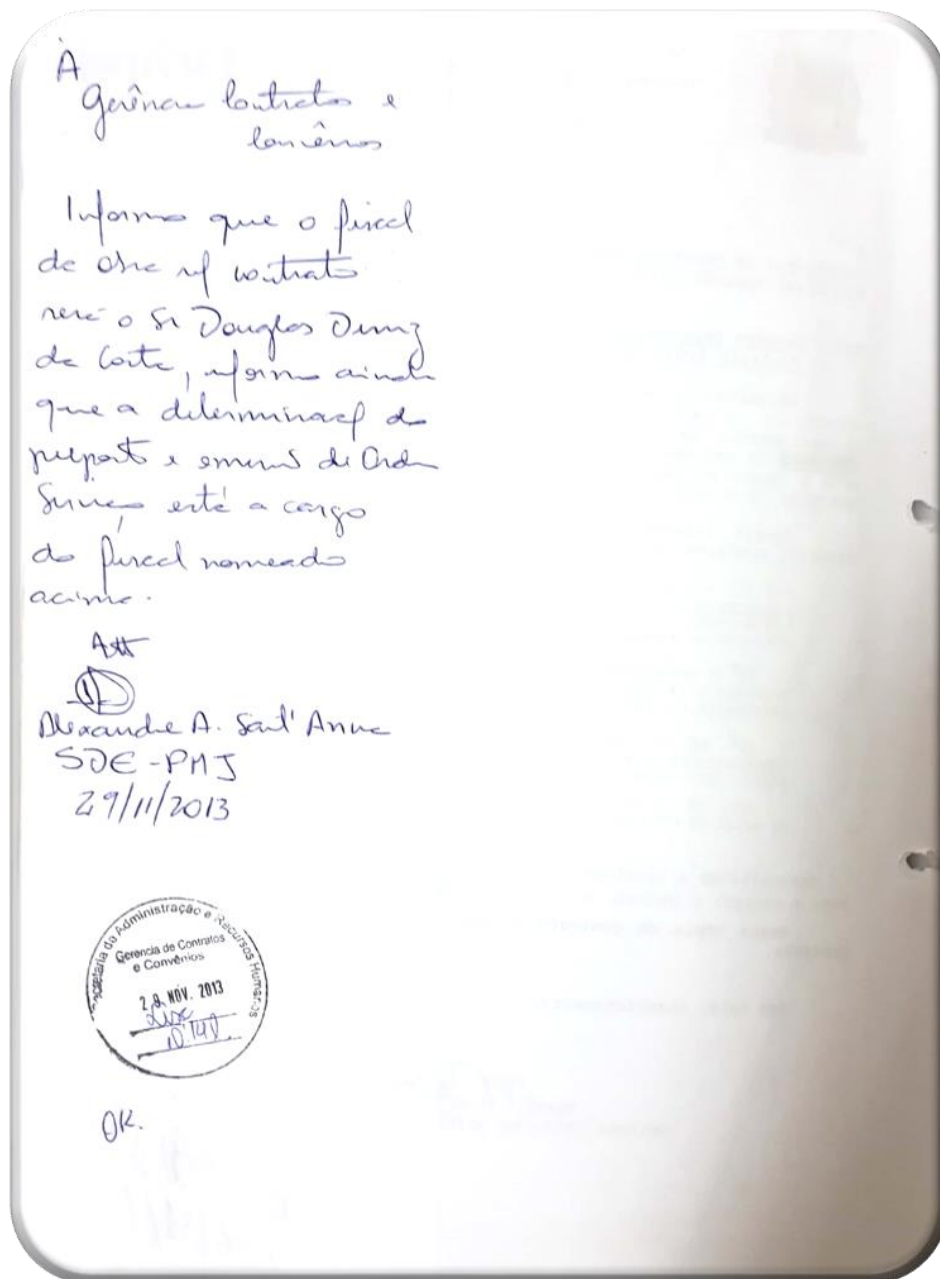 À
Gerência Contratos e
Convênios
Informo que o fiscal
da obra ref contrato
será o Sr Douglas
da Costa, informo ainda
que a determinação do
preposto e emissão de Ordem
Serviço está a cargo
do fiscal nomeado
acima.
Att
Alexandre A. Sant'Anna
SDE-PMJ
29/11/2013
Secretaria de Administração e Recursos Humanos
Gerencia de Contratos
e Convênios
NOV. 2013
OK.